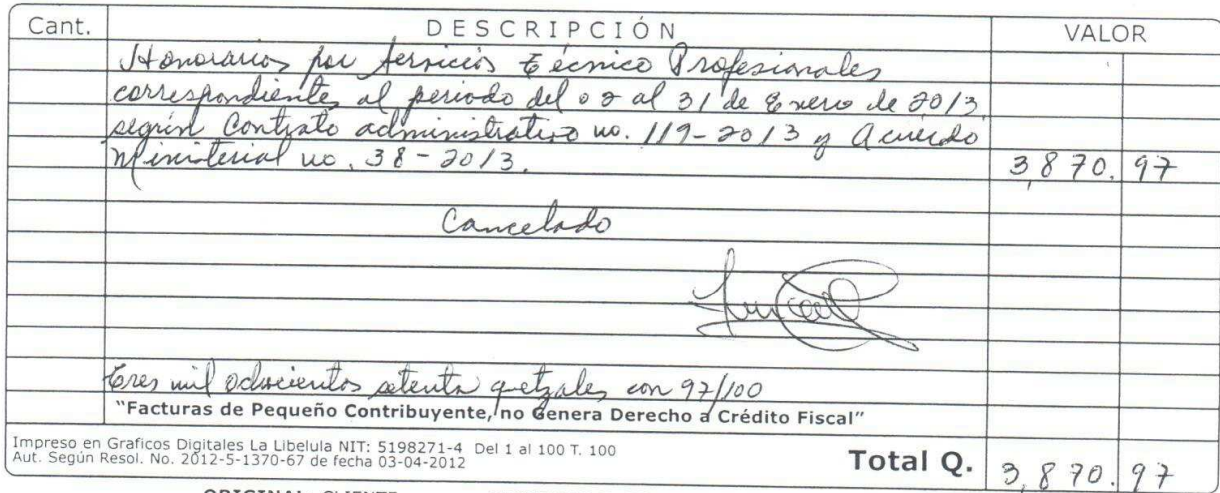 Cant. DESCRIPCIÓN VALOR
Honorarios por Servicios Técnico Profesionales
correspondientes al periodo del 02 al 31 de Enero de 2013
según Contrato administrativo no. 119-2013 y Acuerdo
Ministerial no. 38-2013. 3,870.97
Cancelado
Tres mil ochocientos setenta quetzales con 97/100
"Facturas de Pequeño Contribuyente, no Genera Derecho a Crédito Fiscal"
Impreso en Graficos Digitales La Libelula NIT: 5198271-4 Del 1 al 100 T. 100
Aut. Según Resol. No. 2012-5-1370-67 de fecha 03-04-2012
Total Q. 3,870.97
ORIGINAL: CLIENTE